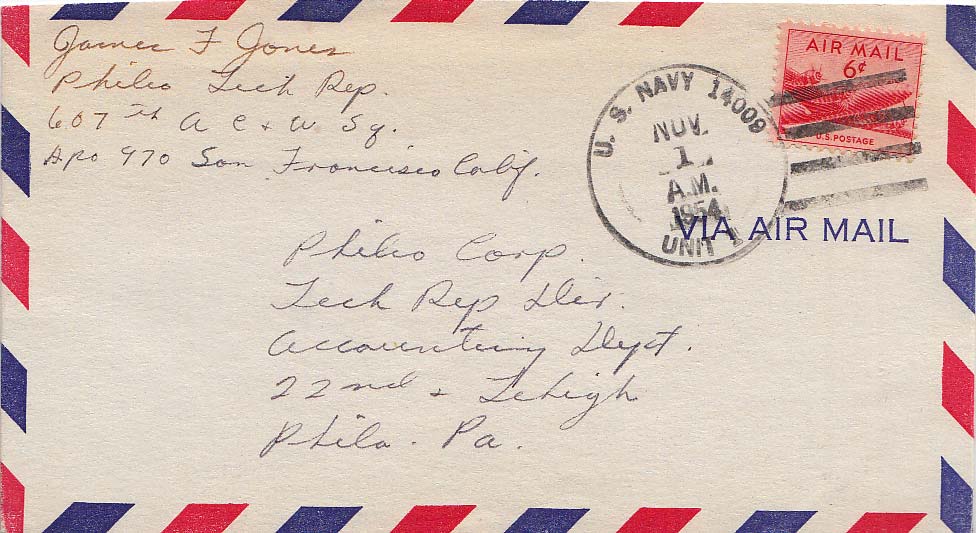 James F Jones
Philco Tech Rep.
607th A C & W Sq.
APO 970 San Francisco Calif.
AIR MAIL
6¢
U.S. POSTAGE
U. S. NAVY 14009
NOV.
1
A.M.
1954
UNIT 1
VIA AIR MAIL
Philco Corp.
Tech Rep Div.
Accounting Dept.
22nd & Lehigh
Phila. Pa.